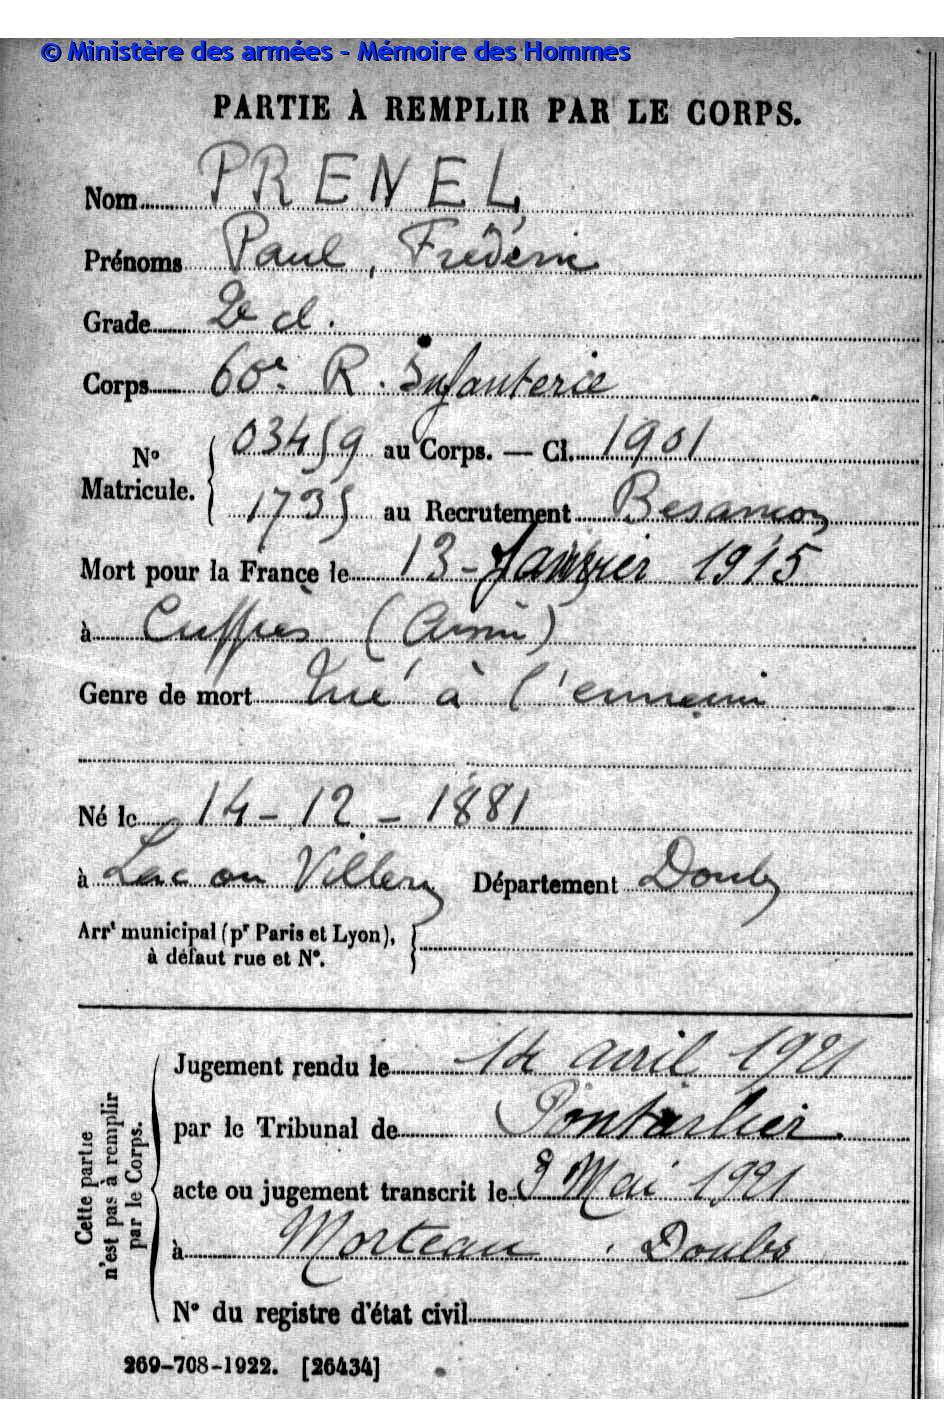 © Ministère des armées - Mémoire des Hommes
PARTIE À REMPLIR PAR LE CORPS.
Nom PRENEL,
Prénoms Paul, Frédéric
Grade 2e cl.
Corps 60e R. Infanterie
No Matricule. 03459 au Corps. — Cl. 1901
1735 au Recrutement Besançon
Mort pour la France le 13 - Janvier 1915
à Cuffies (Aisne)
Genre de mort Tué à l'ennemi
Né le 14 - 12 - 1881
à Lac ou Villers Département Doubs
Arrt municipal (pr Paris et Lyon),
à défaut rue et No.
Cette partie n'est pas à remplir par le Corps.
Jugement rendu le 14 avril 1921
par le Tribunal de Pontarlier.
acte ou jugement transcrit le 9 Mai 1921
à Morteau. Doubs
No du registre d'état civil
269-708-1922. [26434]